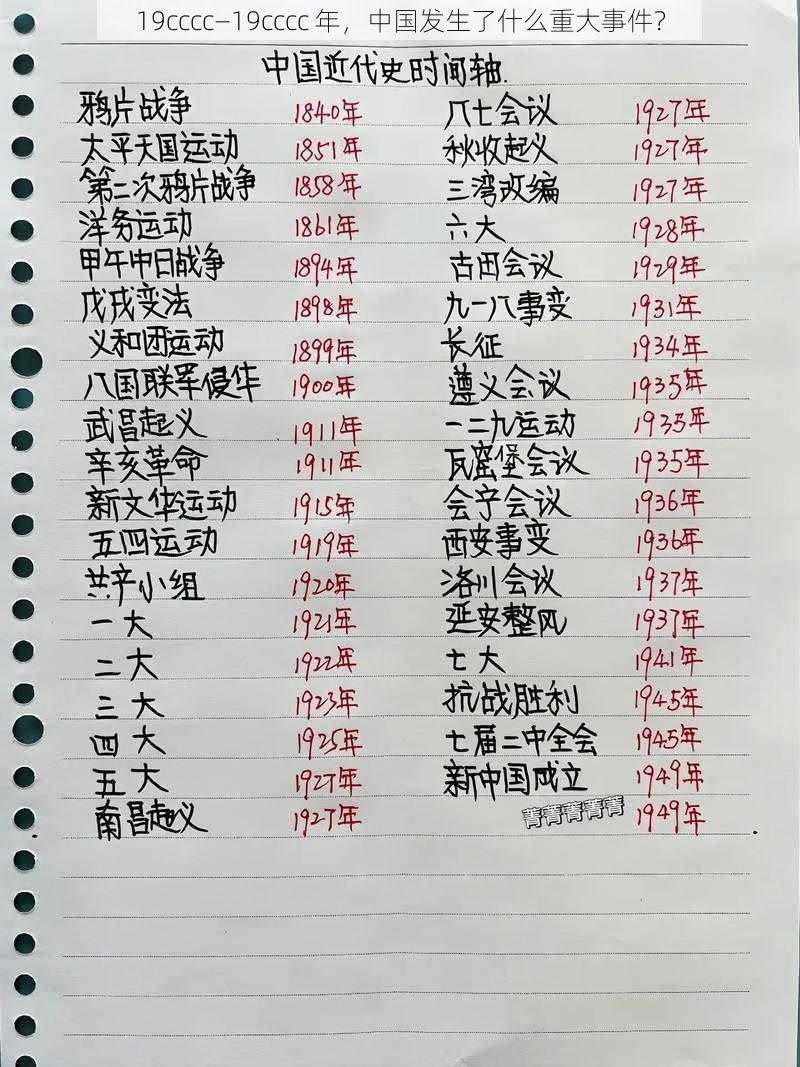 19cccc—19cccc 年，中国发生了什么重大事件？
中国近代史时间轴.
鸦片战争 1840年
太平天国运动 1851年
第二次鸦片战争 1858年
洋务运动 1861年
甲午中日战争 1894年
戊戌变法 1898年
义和团运动 1899年
八国联军侵华 1900年
武昌起义 1911年
辛亥革命 1911年
新文华运动 1915年
五四运动 1919年
共产小组 1920年
一大 1921年
二大 1922年
三大 1923年
四大 1925年
五大 1927年
南昌起义 1927年
八七会议 1927年
秋收起义 1927年
三湾改编 1927年
六大 1928年
古田会议 1929年
九一八事变 1931年
长征 1934年
遵义会议 1935年
一二九运动 1935年
瓦窑堡会议 1935年
会宁会议 1936年
西安事变 1936年
洛川会议 1937年
延安整风 1937年
七大 1941年
抗战胜利 1945年
七届二中全会 1945年
新中国成立 1949年
菁菁菁菁菁 1949年